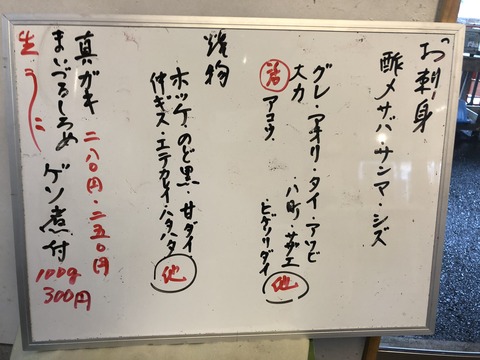 お刺身
酢〆サバ・サンマ・シズ
グレ・アオリ・タイ・アワビ
大力 八町・サザエ
活 アコウ ヒゲソリダイ 他
焼物
ホッケ・のど黒・甘ダイ
沖ギス・エテカレイ・ハタハタ 他
真ガキ 二八〇円・二五〇円
まいづるしろめ ゲソ煮付 100g 300円
生うに